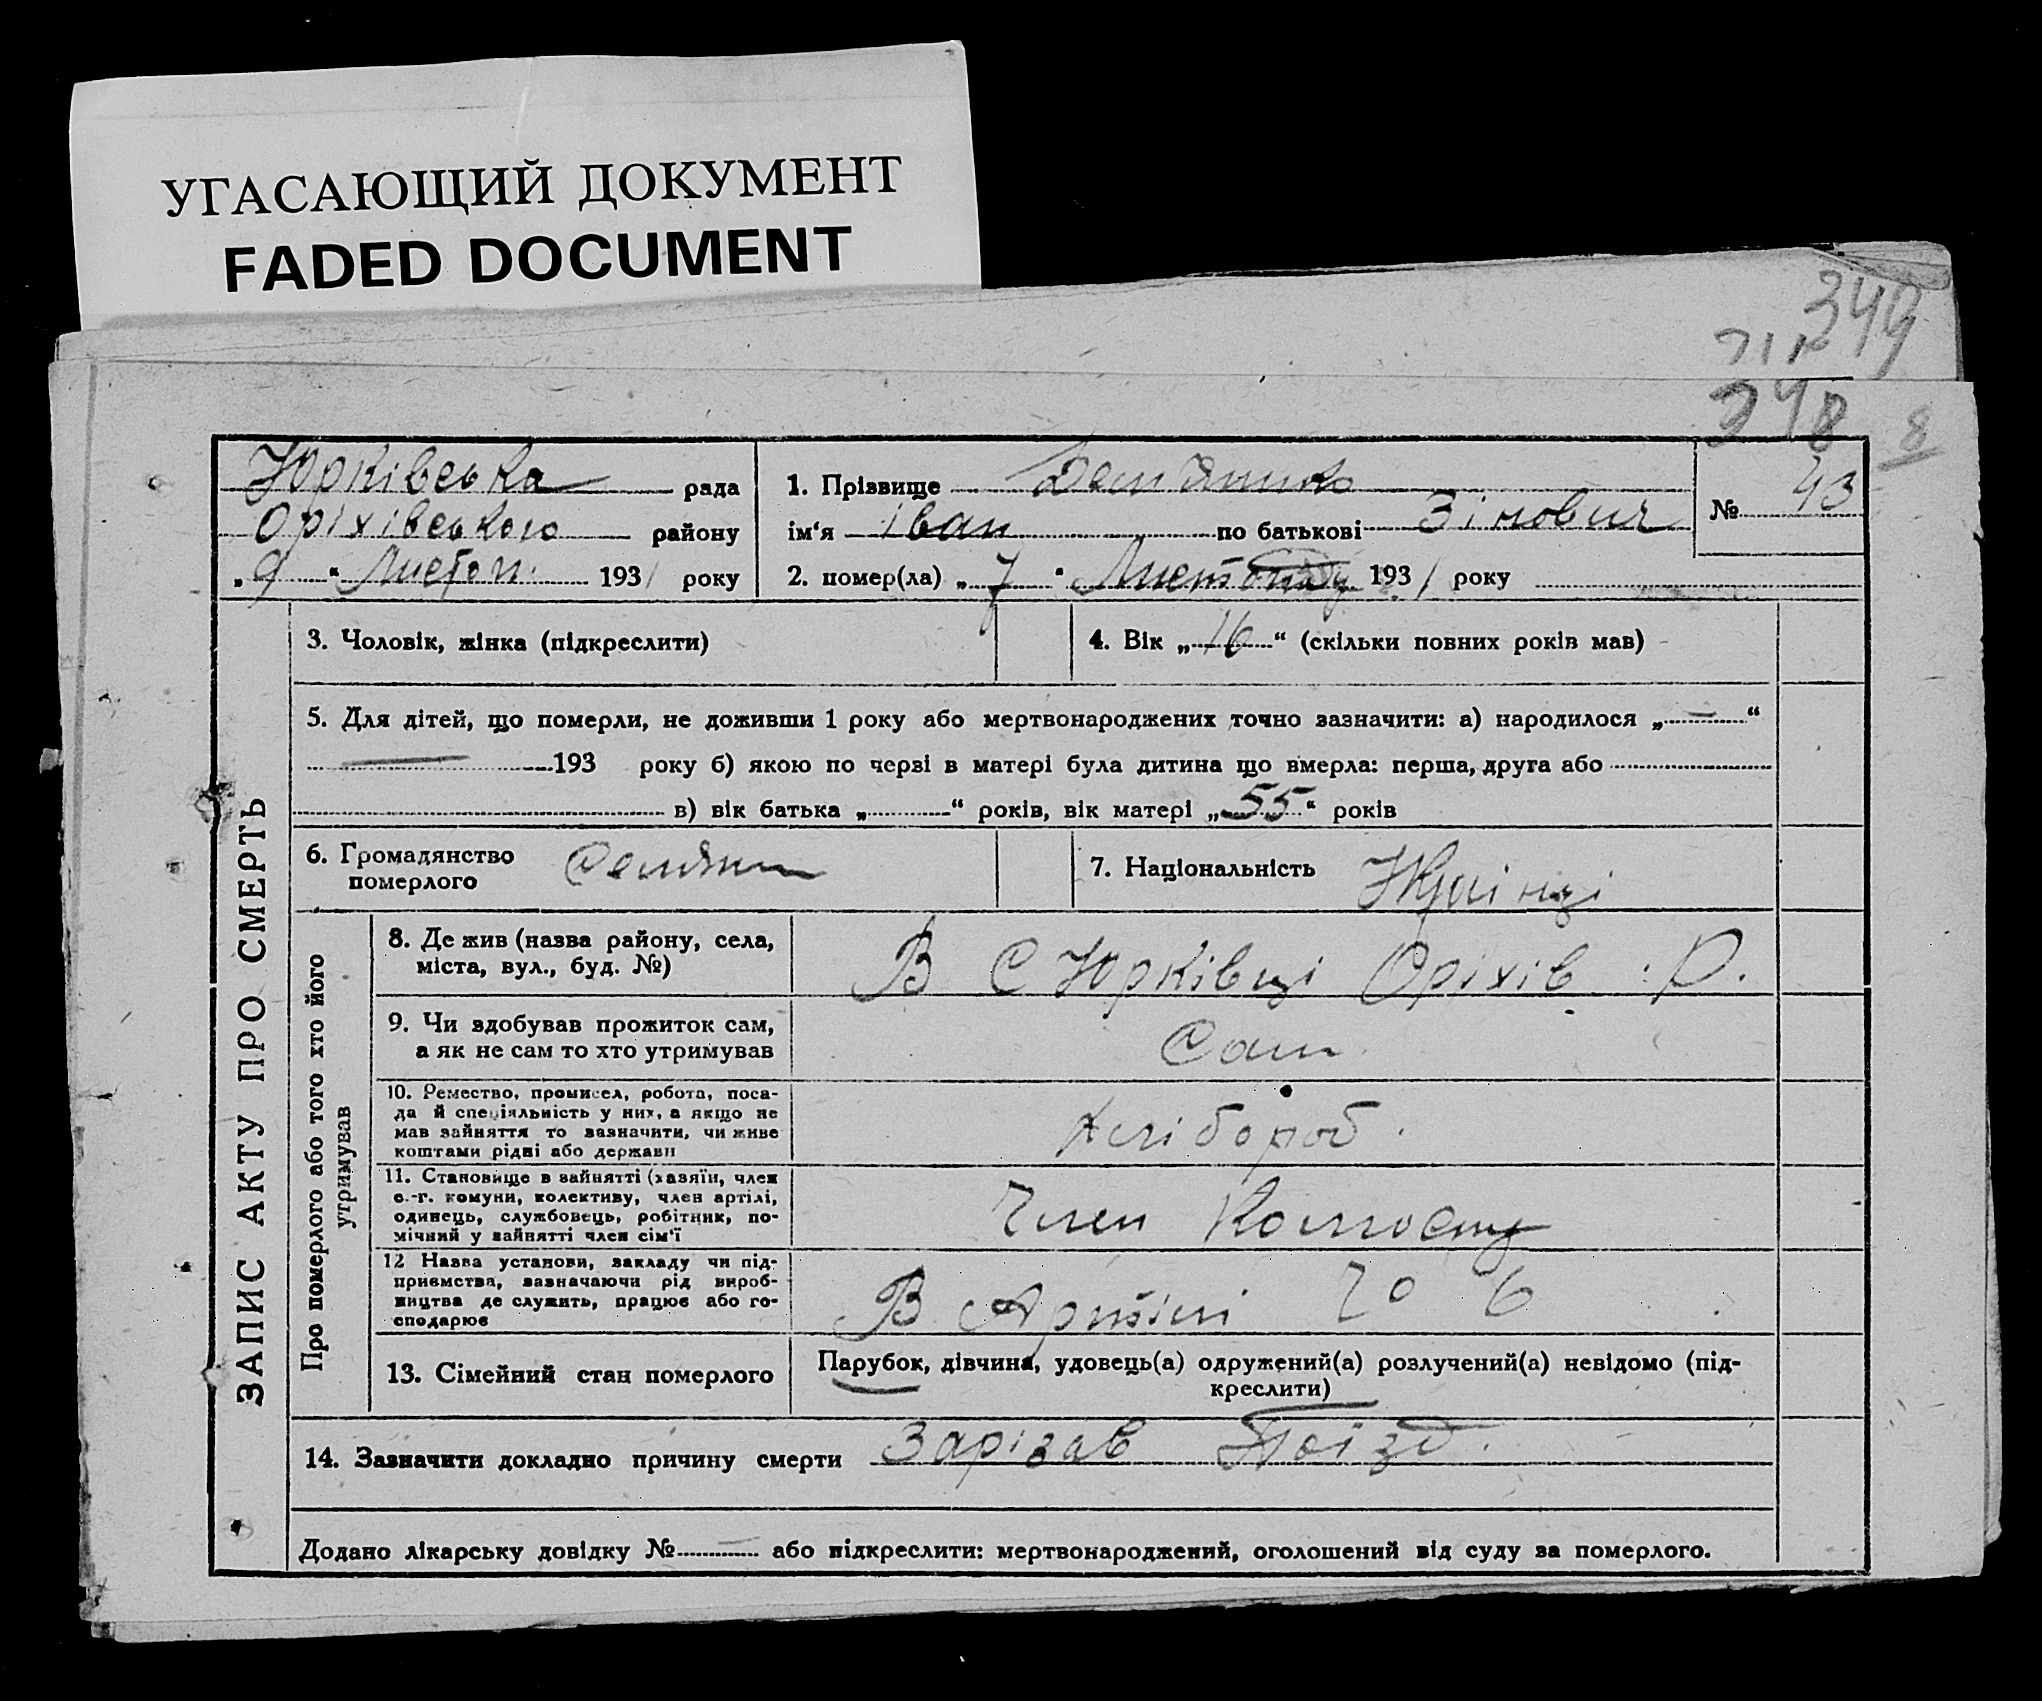 УГАСАЮЩИЙ ДОКУМЕНТ
FADED DOCUMENT
349
348
8
Юрківська рада
Оріхівського району
„ 9 “ Листоп. 1931 року
1. Прізвище Дем'яненко
ім‘я Іван по батькові Зінович
2. помер(ла) „ 7 “ Листопаду 1931 року
№ 43
ЗАПИС АКТУ ПРО СМЕРТЬ
3. Чоловік, жінка (підкреслити)
4. Вік „ 16 “ (скільки повних років мав)
5. Для дітей, що померли, не доживши 1 року або мертвонароджених точно зазначити: а) народилося „ — “
— 193 року б) якою по черзі в матері була дитина що вмерла: перша, друга або
в) вік батька „ “ років, вік матері „ 55 “ років
6. Громадянство
померлого
7. Національність
Про померлого або того хто його
утримував
8. Де жив (назва району, села,
міста, вул., буд. №)
В С Юрківці Оріхів . Р.
9. Чи здобував прожиток сам,
а як не сам то хто утримував
Сам
10. Ремество, промисел, робота, поса-
да й спеціяльність у них, а якщо не
мав зайняття то зазначити, чи живе
коштами рідні або держави
Хлібороб.
11. Становище в зайнятті (хазяїн, член
с.-г. комуни, колективу, член артілі,
одинець, службовець, робітник, по-
мічний у зайнятті член сім‘ї
Член
12 Назва установи, закладу чи під-
приємства, зазначаючи рід вироб-
ництва де служить, працює або го-
сподарює
В Артілі
13. Сімейний стан померлого
Парубок, дівчина, удовець(а) одружений(а) розлучений(а) невідомо (під-
креслити)
14. Зазначити докладно причину смерти Зарізав Поїзд.
Додано лікарську довідку № — або підкреслити: мертвонароджений, оголошений від суду за померлого.